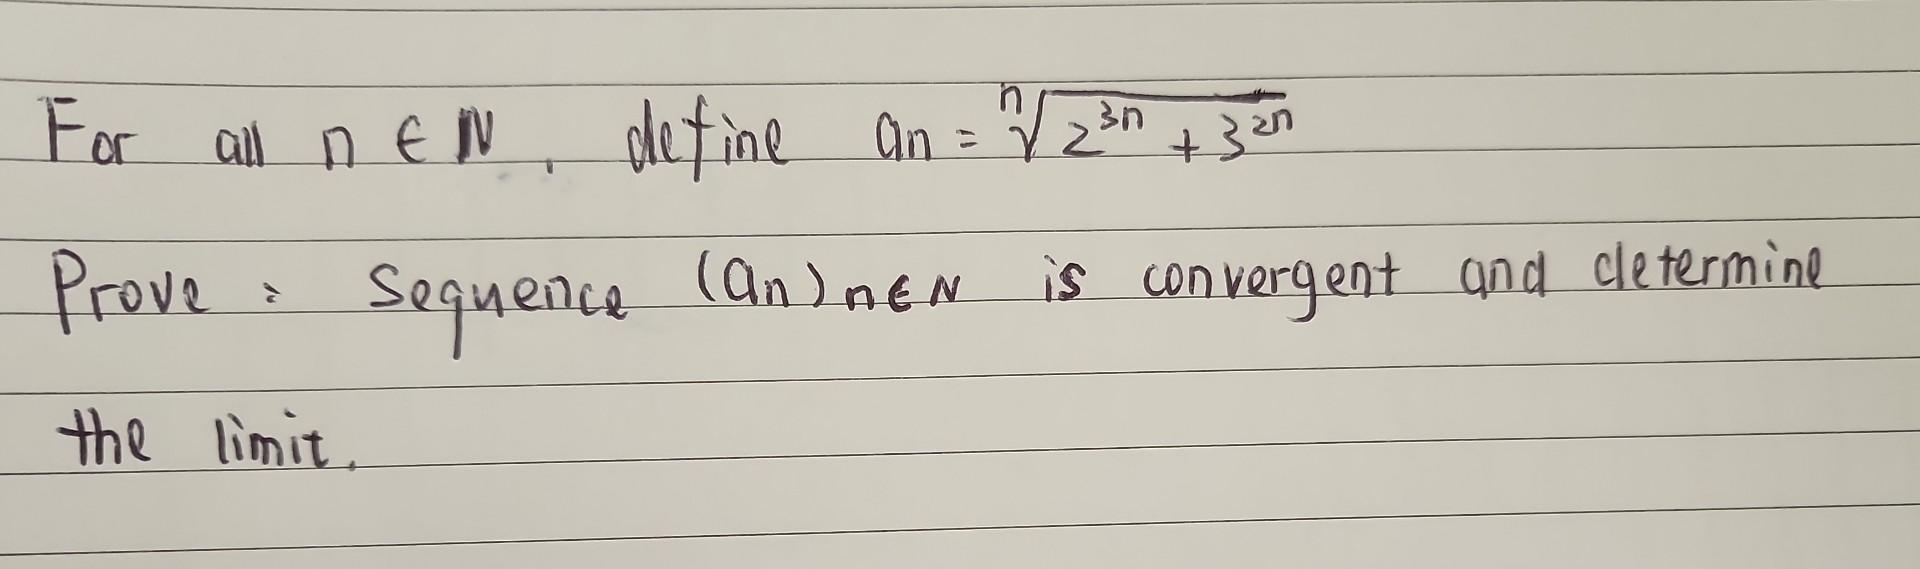 For all n ∈ N, define an = ⁿ√(2³ⁿ + 3²ⁿ)
Prove : Sequence (an)n∈N is convergent and determine
the limit.